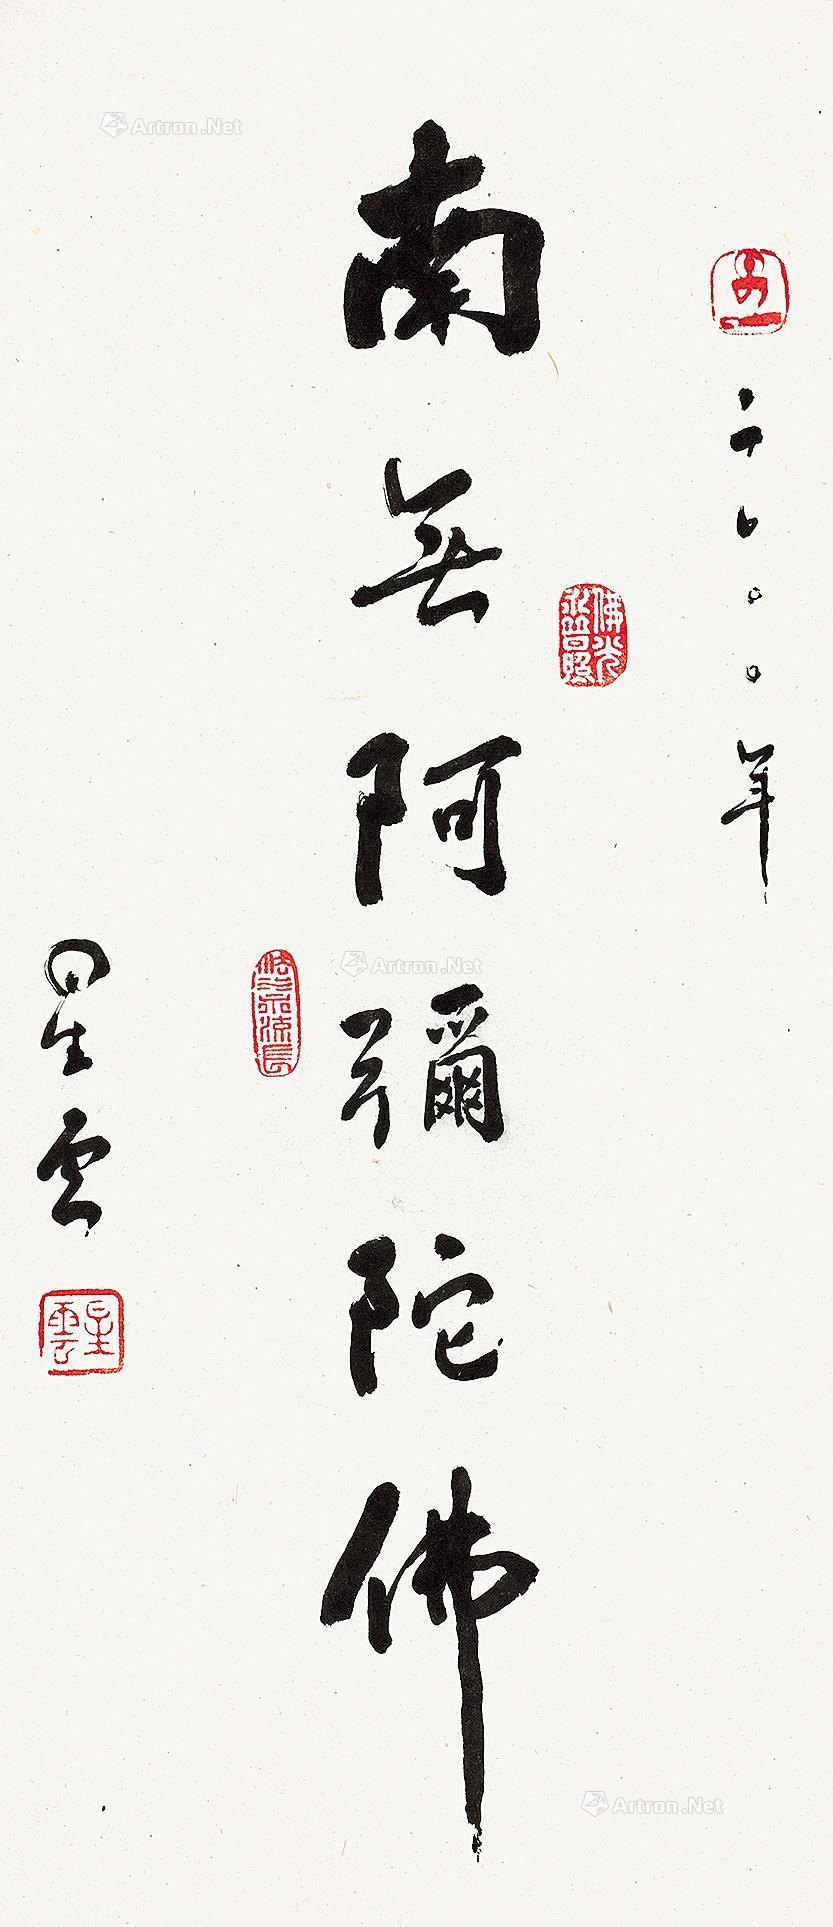 二〇〇〇年
南無阿彌陀佛
星雲
佛光
普照
星雲
Artron.Net
Artron.Net
Artron.Net